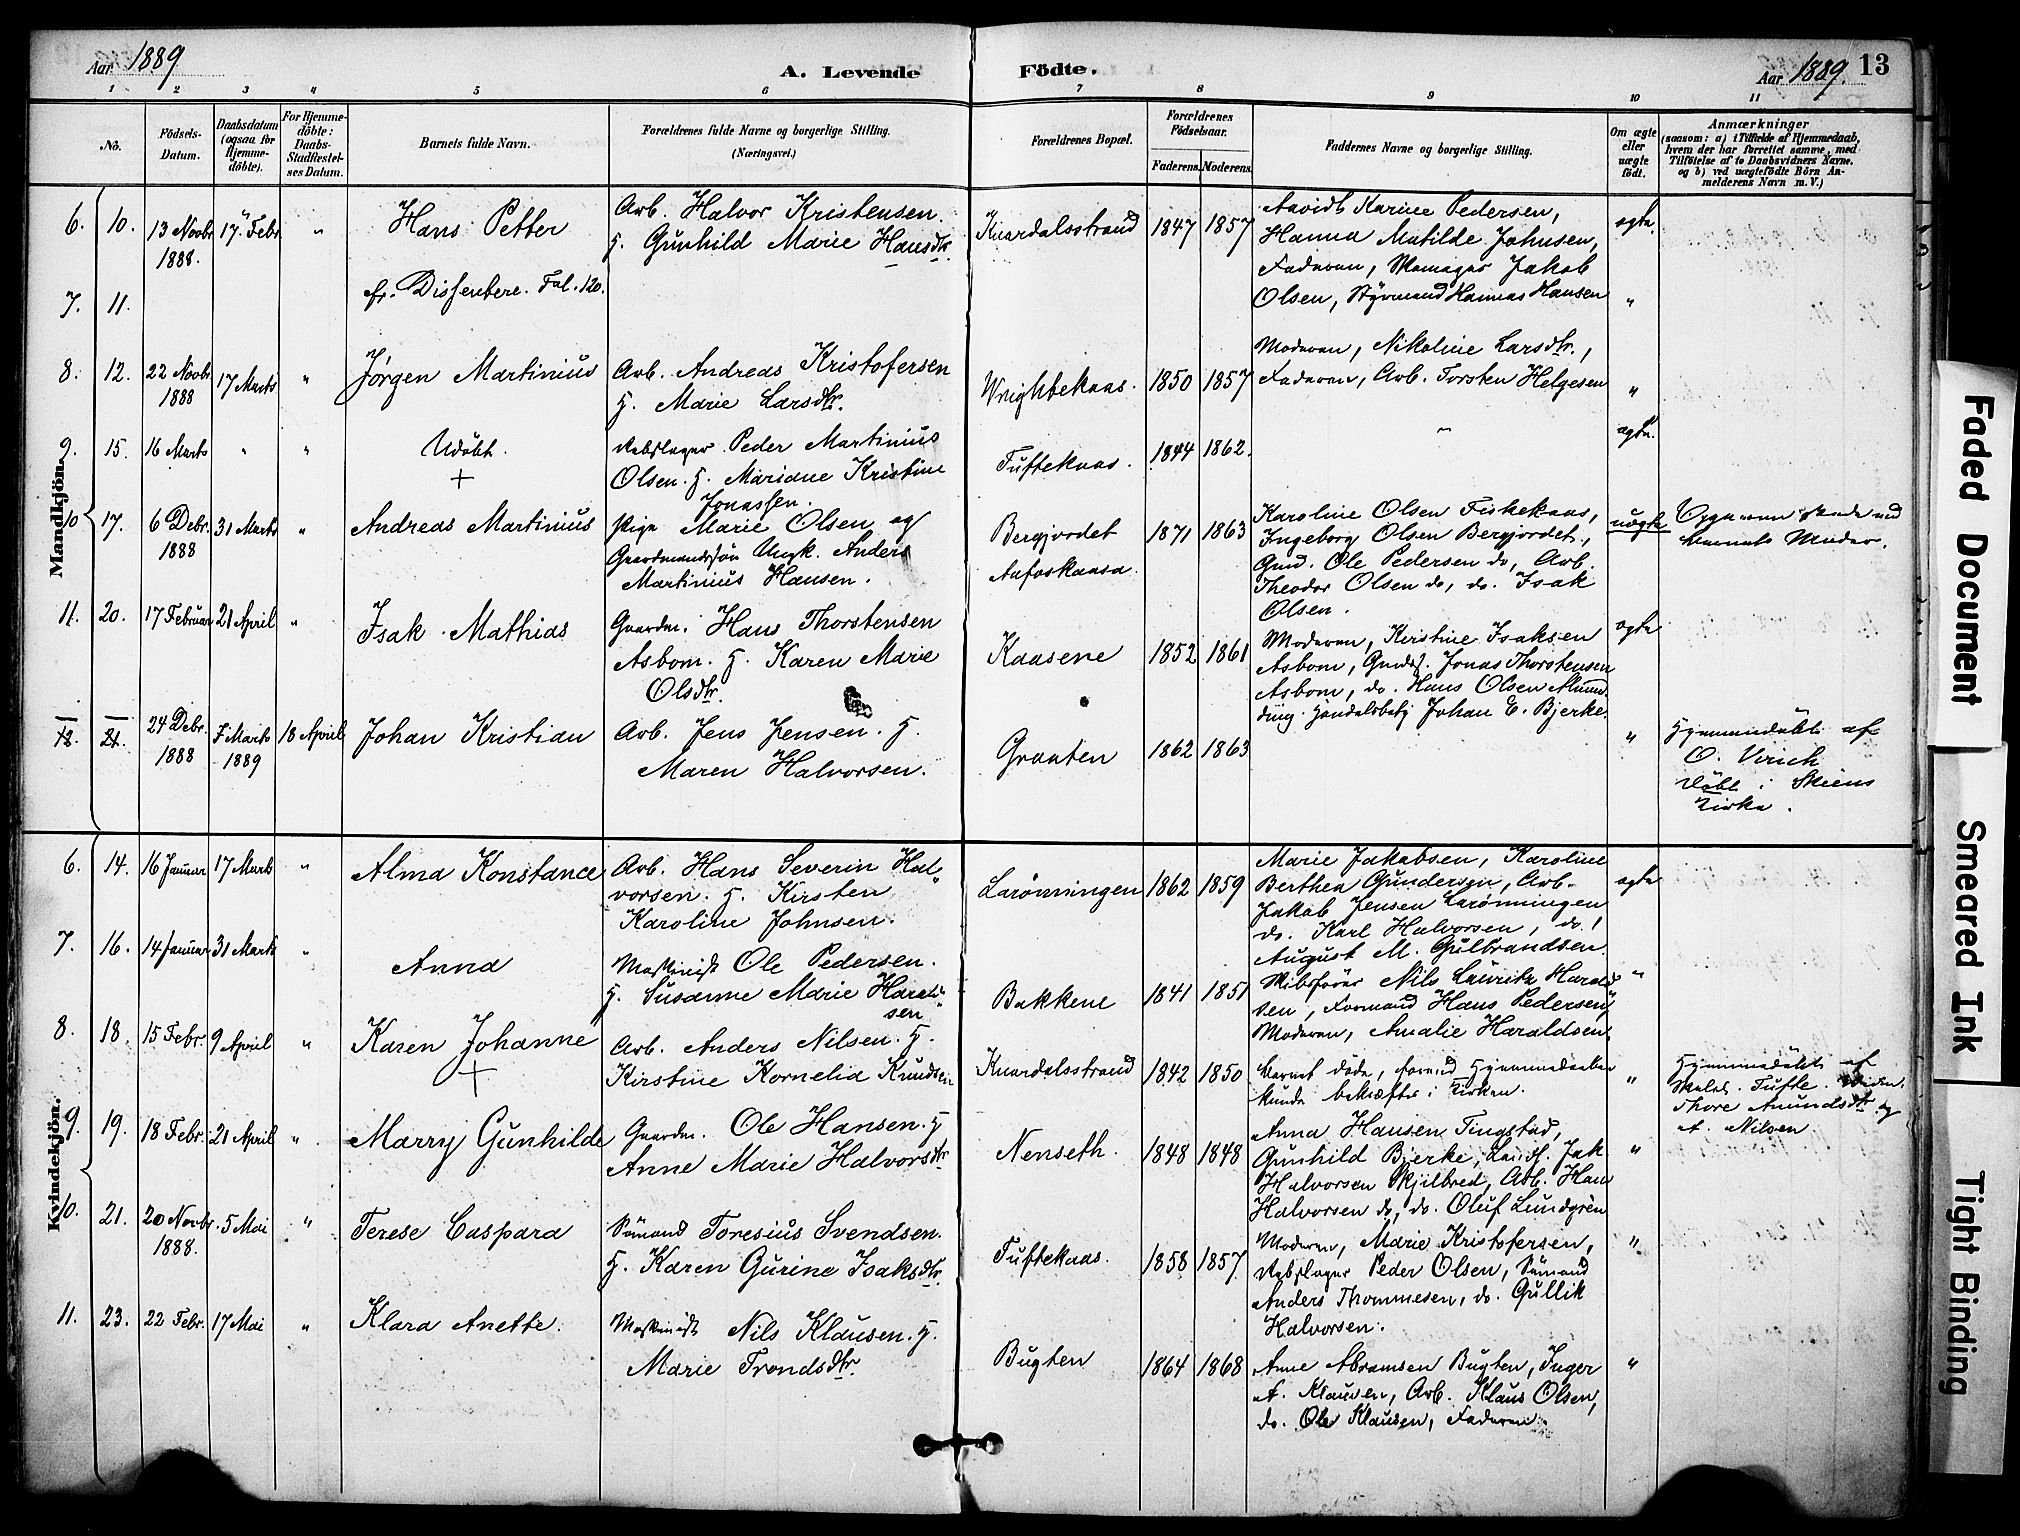 Aar 1889
A. Levende Födte.
Aar 1889. 13
1 2 3 4 5 6 7 8 9 10 11
No.
Födsels-
Datum.
Daabsdatum
(ogsaa for
Hjemme-
döbte).
For Hjemme-
döbte:
Daabs-
Stadfæstel-
ses Datum.
Barnets fulde Navn.
Forældrenes fulde Navne og borgerlige Stilling.
(Næringsvei.)
Forældrenes Bopæl.
Forældrenes
Födselsaar.
Faderens. Moderens.
Faddernes Navne og borgerlige Stilling.
Om ægte
eller
uægte
födt.
Anmærkninger
(saasom: a) i Tilfælde af Hjemmedaab,
hvem der har forrettet samme, med
Tilföielse af to Daabsvidners Navne.
og b) ved uægtefödte Börn An-
melderens Navn m. V.)
Mandkjön.
6. 10. 13 Novbr 1888. 17 Febr. "
Hans Petter
Arb. Halvor Kristensen.
H. Gunhild Marie Hansdtr.
Knardalsstrand 1847 1857
Karine Pedersen,
Hanna Matilde Johnsen,
Faderen, Jakob
Olsen, Styrmand Hannas Hansen
ægte.
7. 11.
fr. Dissentere. Fol. 120.
"
8. 12. 22 Novbr. 1888 17 Marts "
Jørgen Martinius
Arb. Andreas Kristofersen
H. Marie Larsdtr.
1850 1857
Moderen, Nikoline Larsdtr.,
Faderen, Arb. Torsten Helgesen
"
9. 15. 16 Marts " "
Udöbt.
+
Rebslager Peder Martinius
Olsen. H. Mariane Kristine
Jonassen.
Tuftekaas. 1844 1862.
"
ægte.
10 17. 6 Debr. 1888 31 Marts "
Andreas Martinius
Pige Marie Olsen og
Gaardmandssön Ungk. Anders
Martinius Hansen.
Bergjordet
Aafoskaasa.
1871 1863
Karoline Olsen Fiskekaas,
Ingeborg Olsen Bergjordet,
Gmd. Ole Pedersen do, Arb.
Theodor Olsen do, do. Isak
Olsen.
uægte
Opgaven skede ved
barnets Moder.
11. 20. 17 Februar 21 April "
Isak Mathias
Gaardm. Hans Thorstensen
Asbom. H. Karen Marie
Olsdtr.
Kaasene 1852 1861
Moderen, Kirstine Isaksen
Asbom, Jonas Thorstensen
Asbom, do. Hans Olsen
Johan E. Bjerke.
ægte
12. 21. 24 Debr. 1888 7 Marts 1889 18 April
Johan Kristian
Arb. Jens Jensen. H.
Maren Halvorsen.
Graaten 1862 1863
"
Hjemmedöbt af
O. Virich
Döbt i Skiens
Kirke.
Kvindekjön.
6. 14. 16 Januar 17 Marts "
Alma Konstance
Arb. Hans Severin Hal-
vorsen. H. Kirsten
Karoline Johnsen.
Larönningen 1862 1859
Marie Jakobsen, Karoline
Berthea Gundersen, Arb.
Jakob Jensen Larönningen
do. Karl Halvorsen, do.
August M. Gulbrandsen
ægte
7. 16. 14 Januar 31 Marts "
Anna
Maskinist Ole Pedersen.
H. Susanne Marie Harald-
sen
Bakkene 1841 1851
Skibsförer Nils Lauritz Harald-
sen, Formand Hans Pedersen,
Moderen, Amalie Haraldsen.
"
8. 18. 15 Febr. 9 April "
Karen Johanne
+
Arb. Anders Nilsen. H.
Kirstine Kornelia Knudsen
Knardalsstrand 1842 1850
Barnet döde, forend Hjemmedaaben
kunde bekræftes i Kirken.
"
Hjemmedöbt af
Tufte.
Thore Amundsdtr og
A. Nilsen
9. 19. 18 Febr. 21 April "
Marry Gunhilde
Gaardm. Ole Hansen. H
Anne Marie Halvorsdtr
Nenseth. 1848 1848
Anna Hansen Tingstad,
Gunhild Bjerke, Jak
Halvorsen Skjilbred, Arb. Han
Halvorsen do, do. Oluf Lundgrén
"
10. 21. 20 Novbr. 1888. 5 Mai "
Terese Caspara
Sömand Toresius Svendsen.
H. Karen Gurine Isaksdtr.
Tuftekaas. 1858 1857
Moderen, Marie Kristofersen,
Rebslager Peder Olsen, Sömand
Anders Thommesen, do. Gullik
Halvorsen.
"
11. 23. 22 Febr. 17 Mai "
Klara Anette.
Maskinist Nils Klausen. H.
Marie Trondsdtr.
Bugten 1864 1868
Anne Abramsen Bugten, Inger
A. Klausen, Arb. Klaus Olsen,
do. Ole Klausen, Faderen.
"
Faded Document
Smeared Ink
Tight Binding